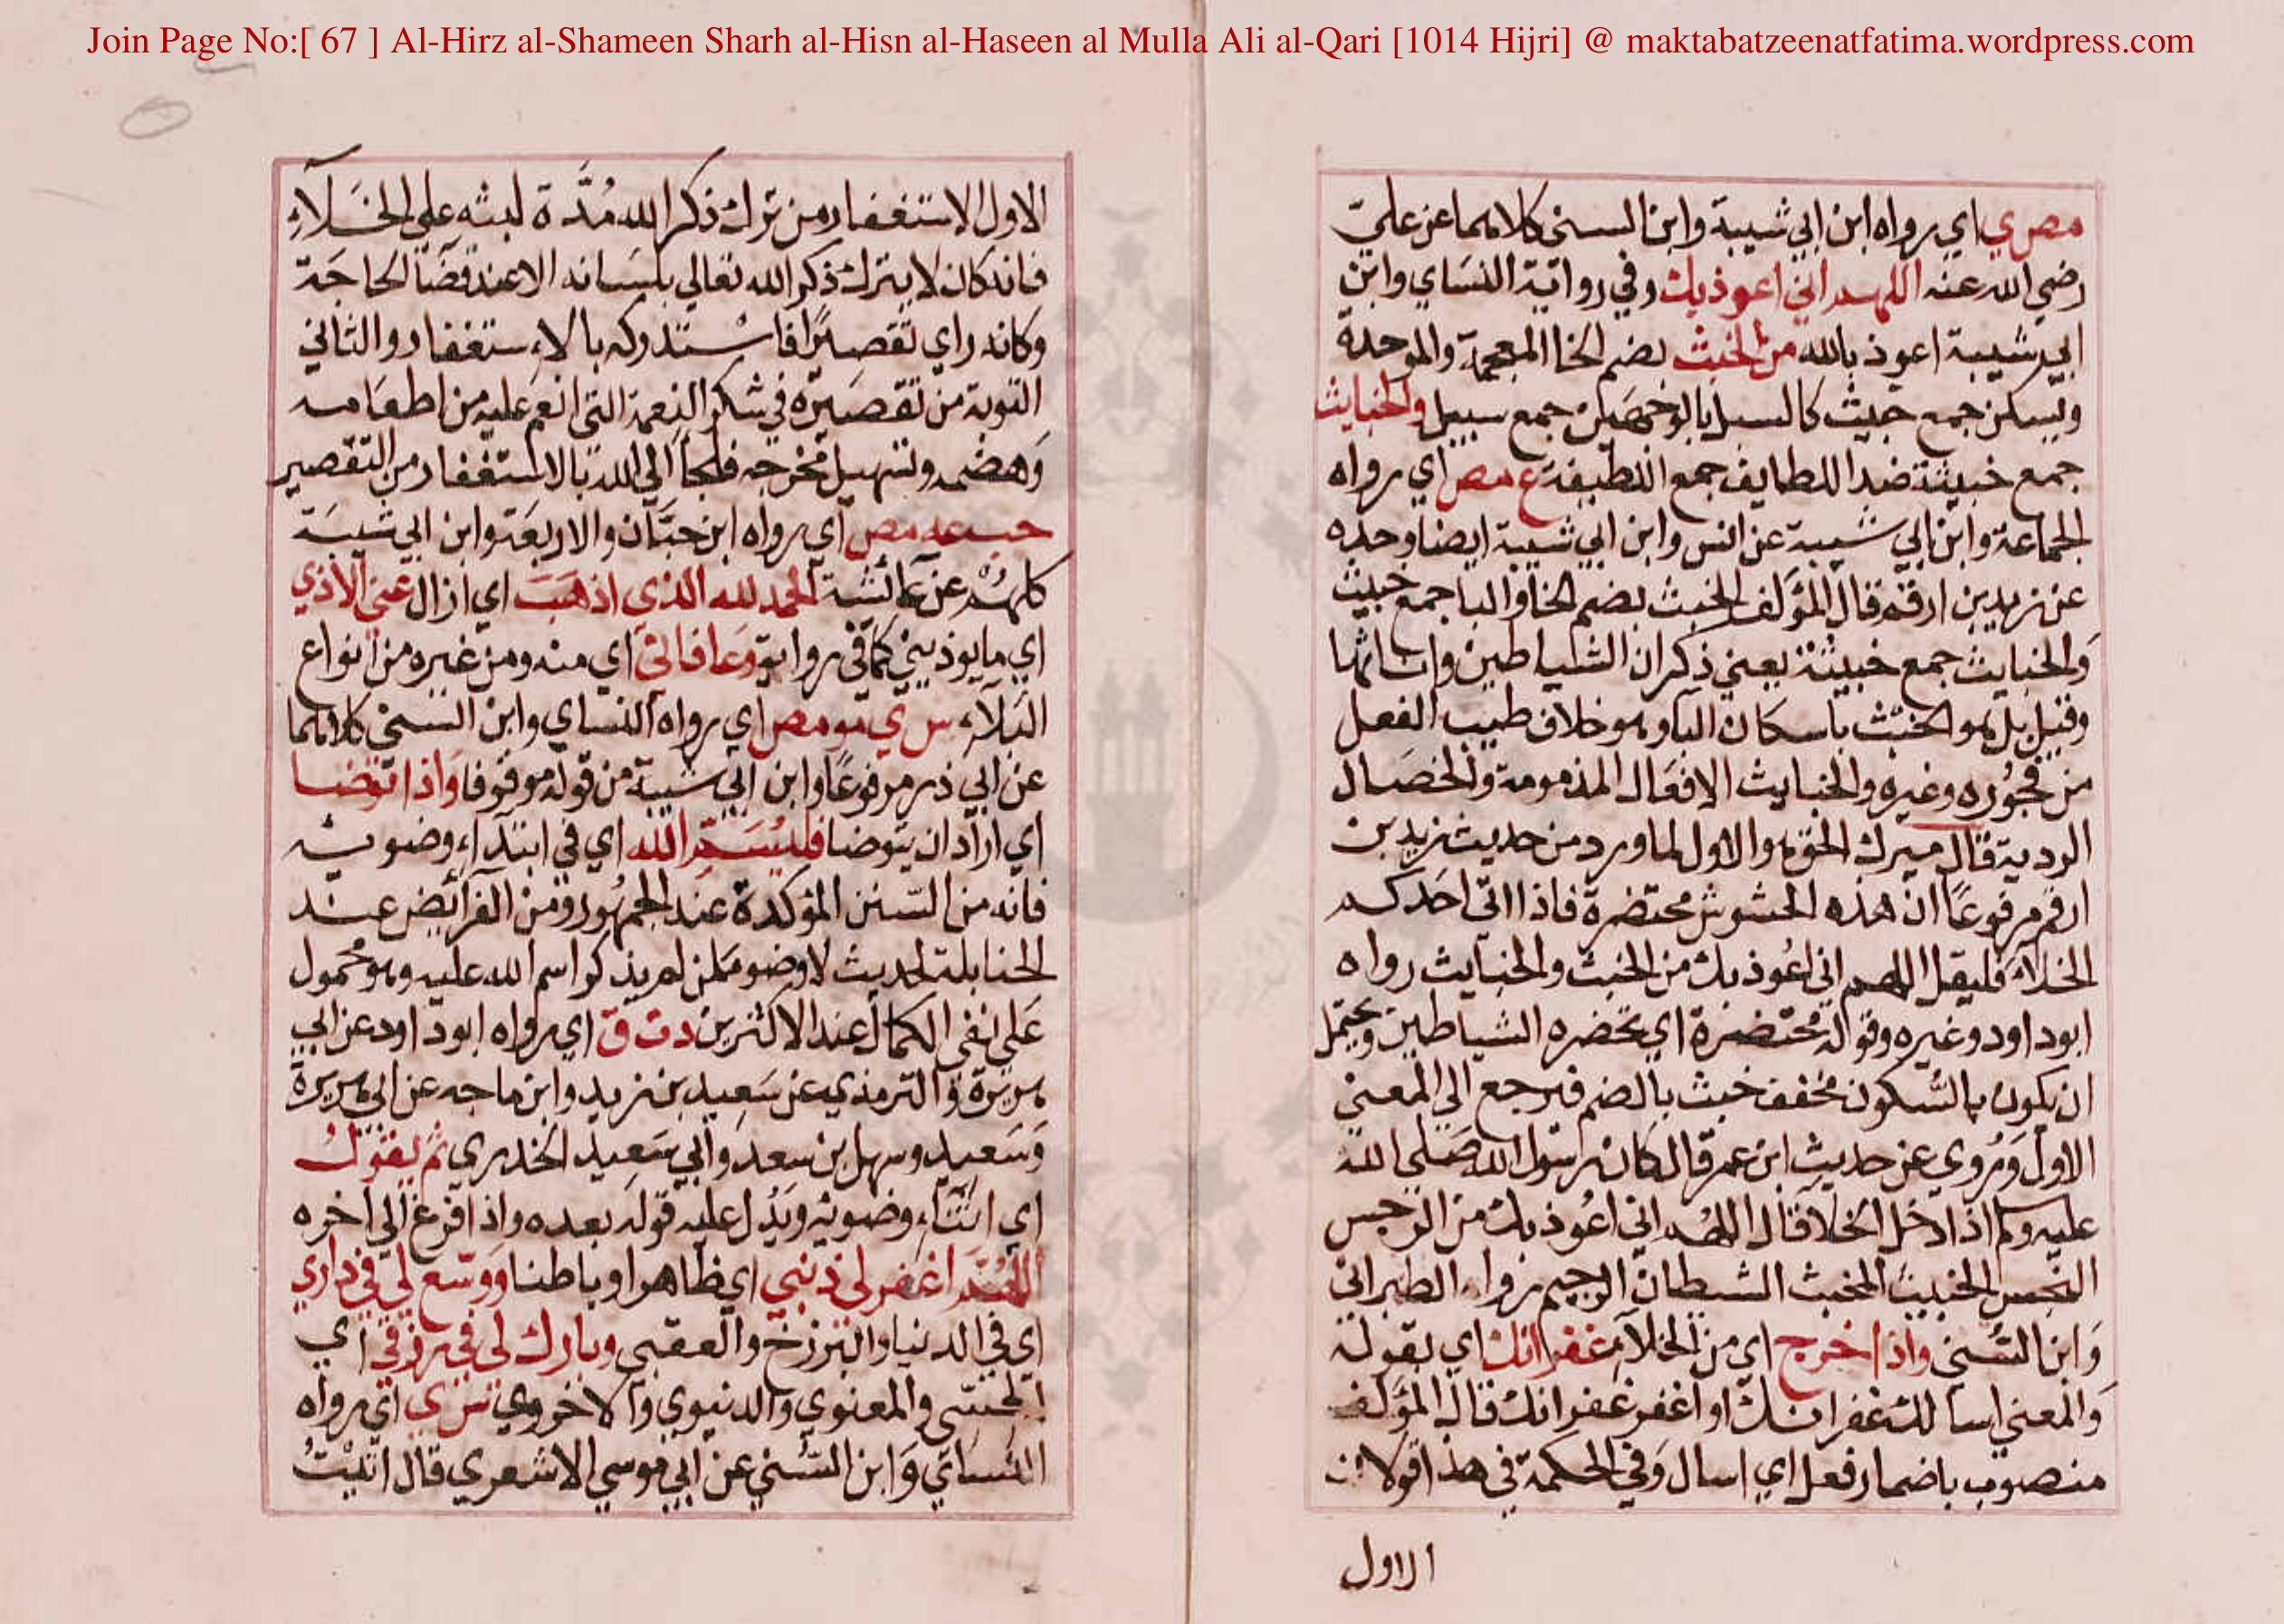 Join Page No:[ 67 ] Al-Hirz al-Shameen Sharh al-Hisn al-Haseen al Mulla Ali al-Qari [1014 Hijri] @ maktabatzeenatfatima.wordpress.com
مص ي اي رواه ابن ابي شيبة وابن السني كلاهما عن علي
رضي الله عنه اللهم اني اعوذ بك وفي رواية النساي وابن
ابي شيبة اعوذ بالله من الخبث بضم الخا المعجمة والموحدة
ويسكن جمع خبيث كالسبل بالوجهين جمع سبيل والخبايث
جمع خبيثة ضد اللطايف جمع اللطيفة ع مص اي رواه
الجماعة وابن ابي شيبة عن انس وابن ابي شيبة ايضا وحده
عن زيد بن ارقم قال المؤلف الخبث بضم الخا والبا جمع خبيث
والخبايث جمع خبيثة يعني ذكران الشياطين واناثها
وقيل بل هو الخبث باسكان البا وهو خلاف طيب الفعل
من فجوره وغيره والخبايث الافعال المذمومة والخصال
الردية قال ميرك الحق هو الاول لما ورد من حديث زيد بن
ارقم مرفوعا ان هذه الحشوش محتضرة فاذا اتى احدكم
الخلاء فليقل اللهم اني اعوذ بك من الخبث والخبايث رواه
ابو داود وغيره وقوله محتضرة اي تحضره الشياطين ويحتمل
ان يكون بالسكون مخفف خبث بالضم فيرجع الي المعني
الاول وروي عن حديث ابن عمر قال كان رسول الله صلي الله
عليه وسلم اذا دخل الخلا قال اللهم اني اعوذ بك من الرجس
النجس الخبيث المخبث الشيطان الرجيم رواه الطبراني
وابن السني واذا خرج اي من الخلاء غفرانك اي يقوله
والمعني اسالك غفرانك او اغفر غفرانك قال المؤلف
منصوب باضمار فعل اي اسال وفي الحكمة في هذا قولان
الاول
الاول الاستغفار من ترك ذكر الله مدة لبثه علي الخلاء
فانه كان لا يترك ذكر الله تعالي بلسانه الا عند قضا الحاجة
وكانه راي تقصيرا فاستدركه بالاستغفار والثاني
التوبة من تقصيره في شكر النعمة التي انعم عليه من اطعامه
وهضمه وتسهيل مخرجه فلجا الي الله بالاستغفار من التقصير
حب عه مص اي رواه ابن حبان والاربعة وابن ابي شيبة
كلهم عن عائشة الحمد لله الذي اذهب اي ازال عني الاذي
اي ما يوذيني كما في رواية وعافاني اي منه ومن غيره من انواع
البلاء س ي مو مص اي رواه النساي وابن السني كلاهما
عن ابي ذر مرفوعا وابن ابي شيبة من قوله موقوفا واذا توضا
اي اراد ان يتوضا فليسم الله اي في ابتداء وضويه
فانه من السنن المؤكدة عند الجمهور ومن الفرائض عند
الحنابلة لحديث لا وضوء لمن لم يذكر اسم الله عليه وهو محمول
علي نفي الكمال عند الاكثرين د ت ق اي رواه ابو داود عن ابي
هريرة والترمذي عن سعيد بن زيد وابن ماجه عن ابي هريرة
وسعيد وسهل بن سعد وابي سعيد الخدري ثم يقول
اي اثناء وضويه ويدل عليه قوله بعده واذا فرغ الي اخره
اللهم اغفر لي ذنبي اي ظاهرا وباطنا ووسع لي في داري
اي في الدنيا والبرزخ والعقبي وبارك لي في رزقي اي
الحسي والمعنوي والدنيوي والاخروي س ي اي رواه
النساي وابن السني عن ابي موسي الاشعري قال اتيت